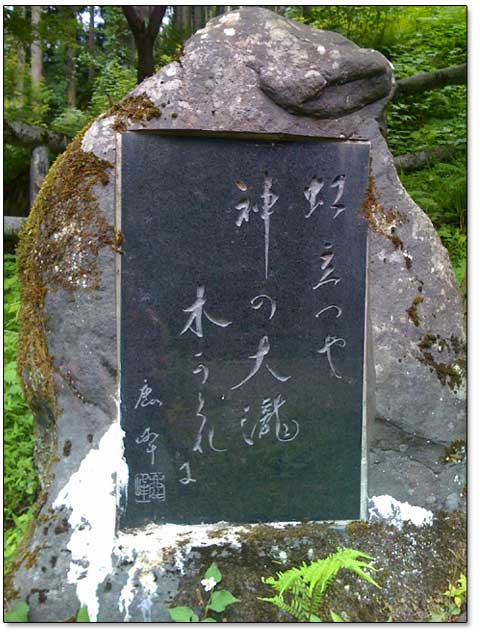 虹立つや
神の大瀧
木かくれに